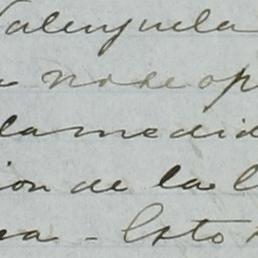 Valenzuela
no se op
la medid
ion de la C
na - Esto